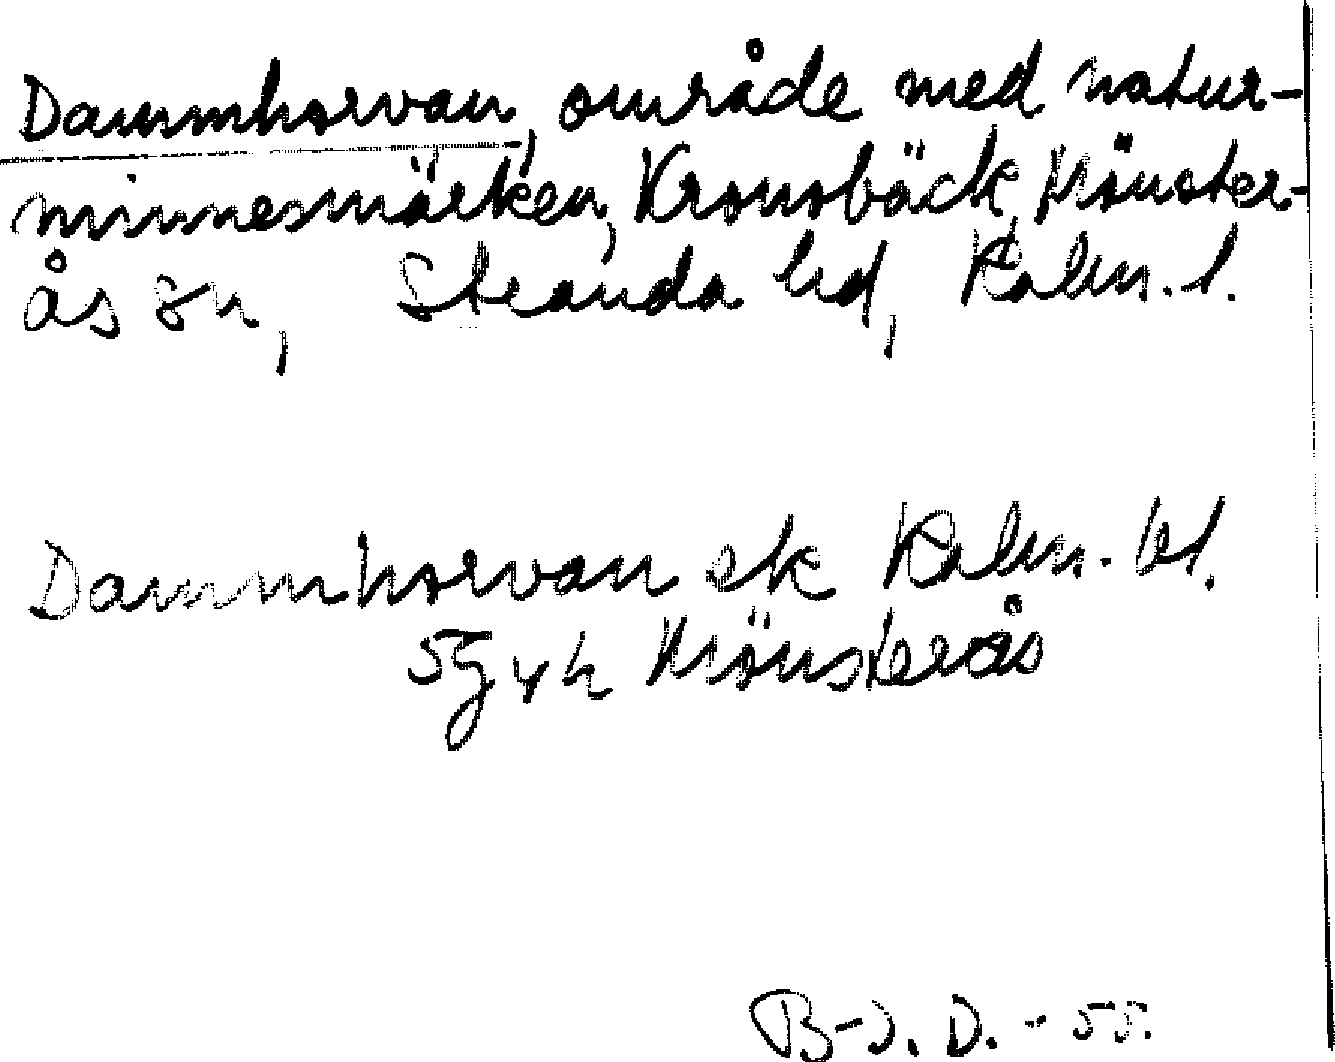 Dammhorvan, område med natur-
minnesmärken, Kronobäck, Mönster-
ås sn, Stranda hd, Kalm. l.
Dammhorvan ek Kalm. bl.
5G 4h Mönsterås
B-J. D. - 55.